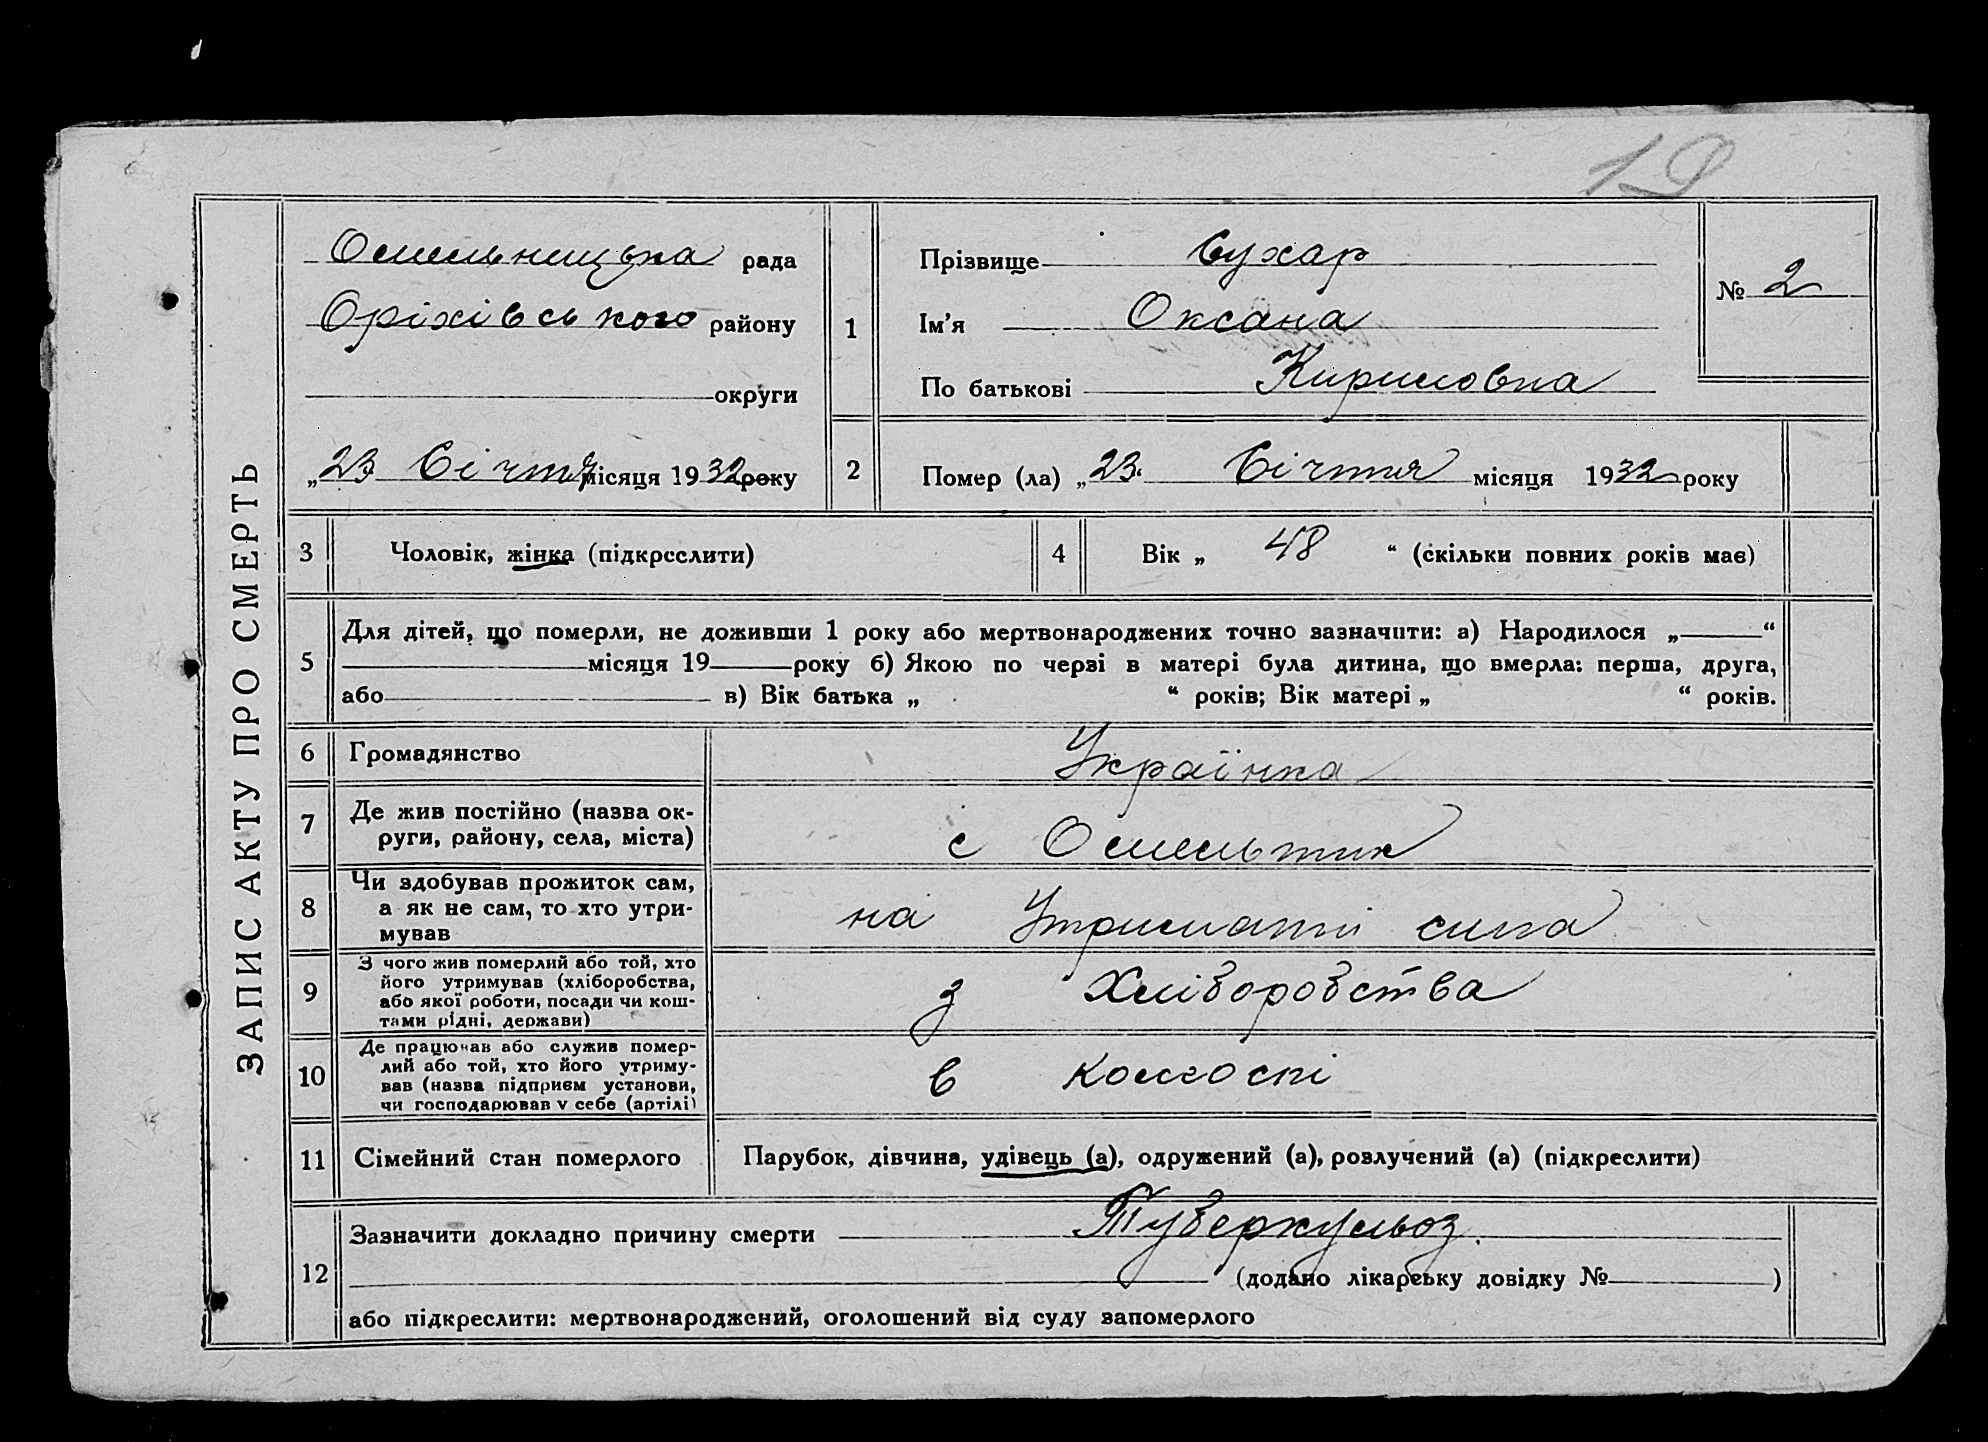 19
ЗАПИС АКТУ ПРО СМЕРТЬ
Омельницька рада
Оріхівського району
округи
„23 Січтя місяця 1932 року
1
Прізвище Сухар
Ім'я Оксана
По батькові Киримовна
№ 2
2 Помер (ла) „23“ Січтя місяця 1932 року
3 Чоловік, жінка (підкреслити)
4 Вік „ 48 “ (скільки повних років має)
5 Для дітей, що померли, не доживши 1 року або мертвонароджених точно зазначити: а) Народилося „ “
місяця 19 року б) Якою по черзі в матері була дитина, що вмерла: перша, друга,
або в) Вік батька „ “ років; Вік матері „ “ років.
6 Громадянство Українка
7 Де жив постійно (назва ок-
руги, району, села, міста) с Омельник
8 Чи здобував прожиток сам,
а як не сам, то хто утри-
мував на Утриманні сина
9 З чого жив померлий або той, хто
його утримував (хліборобства,
або якої роботи, посади чи кош-
тами рідні, держави) з Хліборобства
10 Де працював або служив помер-
лий або той, хто його утриму-
вав (назва підприєм установи,
чи господарював у себе (артілі) в колгоспі
11 Сімейний стан померлого Парубок, дівчина, удівець (а), одружений (а), розлучений (а) (підкреслити)
12 Зазначити докладно причину смерти Туберкульоз.
(додано лікарську довідку № )
або підкреслити: мертвонароджений, оголошений від суду запомерлого